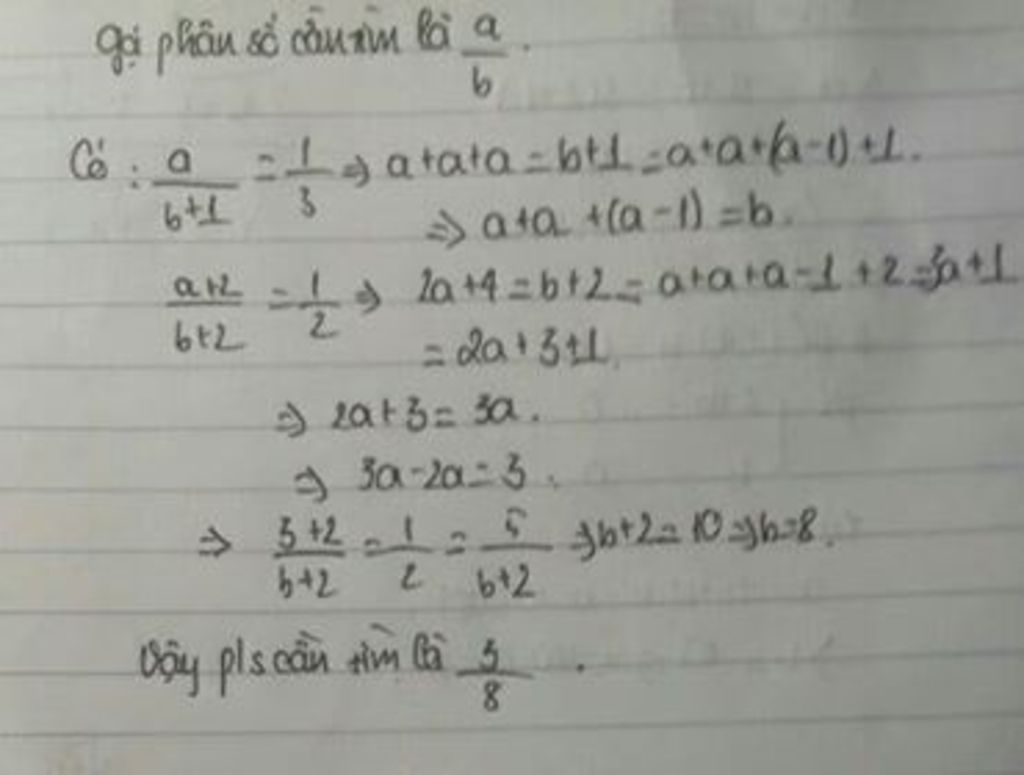 Gọi phân số cần tìm là a/b.
Có: a/(b+1) = 1/3 => a+a+a = b+1 = a+a+(a-1)+1.
=> a+a+(a-1) = b.
(a+2)/(b+2) = 1/2 => 2a+4 = b+2 = a+a+a-1+2 = 3a+1
= 2a+3+1.
=> 2a+3 = 3a.
=> 3a-2a = 3.
=> (3+2)/(b+2) = 1/2 = 5/(b+2) => b+2 = 10 => b = 8.
Vậy pls cần tìm là 3/8.